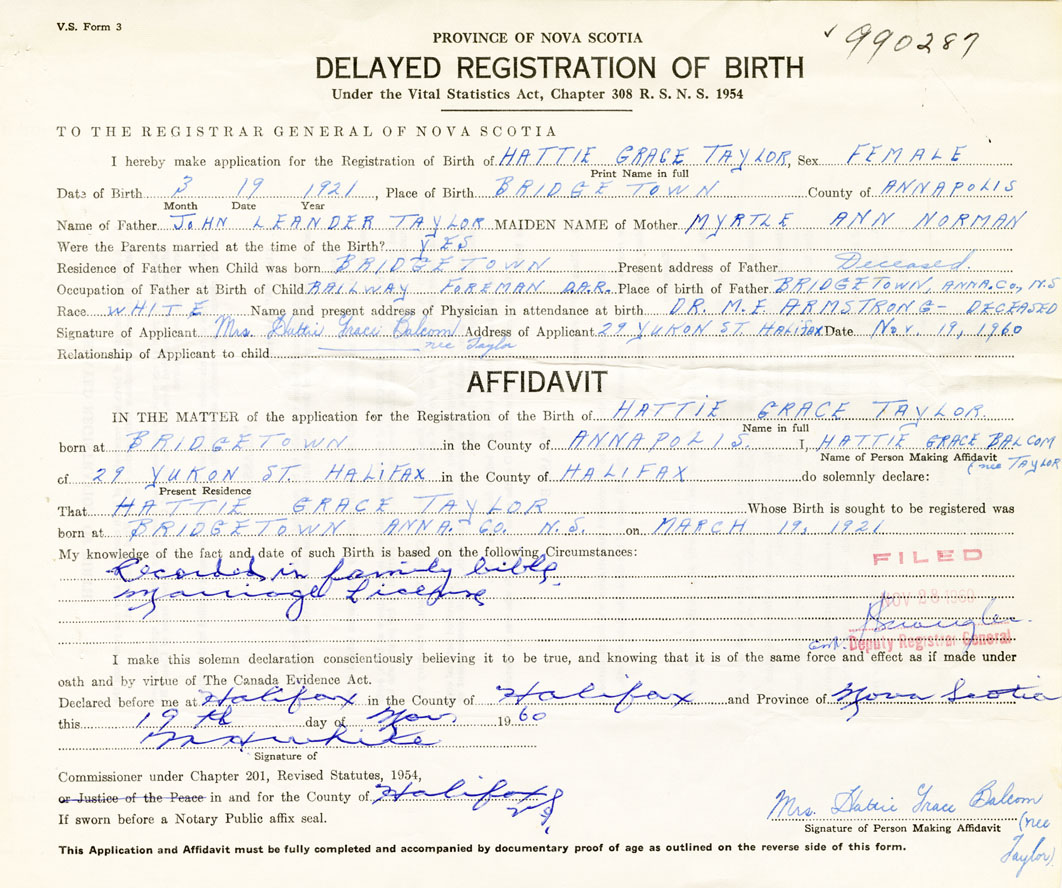 V.S. Form 3
990287
PROVINCE OF NOVA SCOTIA
DELAYED REGISTRATION OF BIRTH
Under the Vital Statistics Act, Chapter 308 R. S. N. S. 1954
TO THE REGISTRAR GENERAL OF NOVA SCOTIA
I hereby make application for the Registration of Birth of HATTIE GRACE TAYLOR, Sex FEMALE
Print Name in full
Date of Birth 3 19 1921, Place of Birth BRIDGETOWN County of ANNAPOLIS
Month Date Year
Name of Father JOHN LEANDER TAYLOR MAIDEN NAME of Mother MYRTLE ANN NORMAN
Were the Parents married at the time of the Birth? YES
Residence of Father when Child was born BRIDGETOWN Present address of Father Deceased.
Occupation of Father at Birth of Child RAILWAY FOREMAN D.A.R. Place of birth of Father BRIDGETOWN, ANNA. CO., N.S
Race WHITE Name and present address of Physician in attendance at birth DR. M.E. ARMSTRONG - DECEASED
Signature of Applicant Mrs. Hattie Grace Balcom Address of Applicant 29 YUKON ST. HALIFAX Date Nov. 19, 1960
nee Taylor
Relationship of Applicant to child
AFFIDAVIT
IN THE MATTER of the application for the Registration of the Birth of HATTIE GRACE TAYLOR.
Name in full
born at BRIDGETOWN in the County of ANNAPOLIS. I, HATTIE GRACE BALCOM
Name of Person Making Affidavit (nee TAYLOR
of 29 YUKON ST. HALIFAX in the County of HALIFAX do solemnly declare:
Present Residence
That HATTIE GRACE TAYLOR Whose Birth is sought to be registered was
born at BRIDGETOWN ANNA. CO. N.S. on MARCH 19, 1921
My knowledge of the fact and date of such Birth is based on the following Circumstances:
Recorded in family bible
Marriage License
FILED
NOV 28 1960
Deputy Registrar General
I make this solemn declaration conscientiously believing it to be true, and knowing that it is of the same force and effect as if made under
oath and by virtue of The Canada Evidence Act.
Declared before me at Halifax in the County of Halifax and Province of Nova Scotia
this 19th day of Nov. 1960
Signature of
Commissioner under Chapter 201, Revised Statutes, 1954,
or Justice of the Peace in and for the County of Halifax
N.S.
If sworn before a Notary Public affix seal.
Mrs. Hattie Grace Balcom
Signature of Person Making Affidavit (nee
Taylor)
This Application and Affidavit must be fully completed and accompanied by documentary proof of age as outlined on the reverse side of this form.